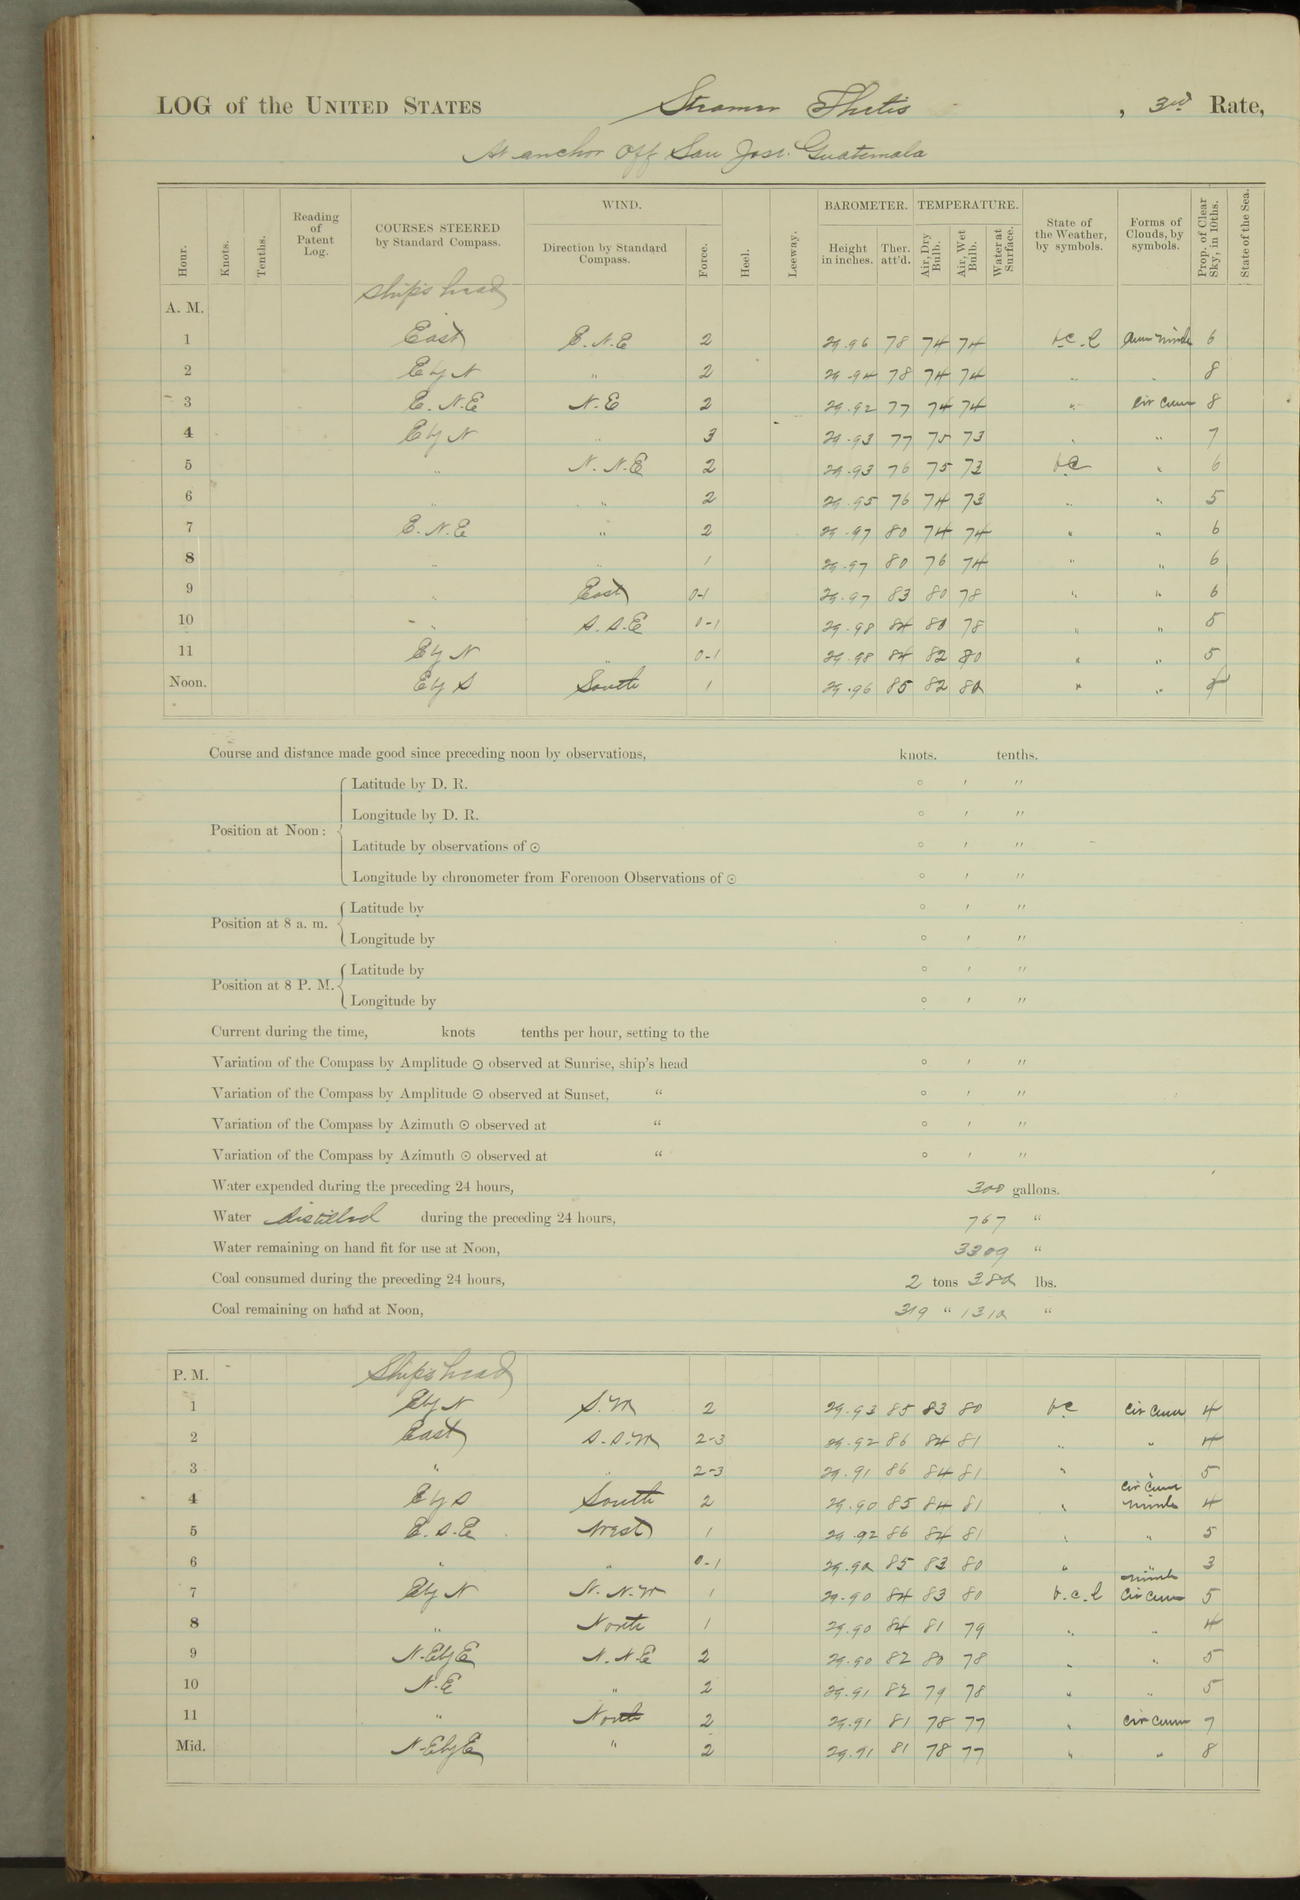 LOG of the UNITED STATES Steamer Thetis , 3rd Rate,
At anchor off San Jose. Guatemala
Hour. Knots. Tenths. Reading of Patent Log. COURSES STEERED by Standard Compass. WIND. Direction by Standard Compass. Force. Heel. Leeway. BAROMETER. Height in inches. Ther. att'd. TEMPERATURE. Air, Dry Bulb. Air, Wet Bulb. Water at Surface. State of the Weather, by symbols. Forms of Clouds, by symbols. Prop. of Clear Sky, in 10ths. State of the Sea.
A. M. Ship's head
1 East E.N.E 2 29.96 78 74 74 b.c.l Cum Nimb 6
2 E by N " 2 29.94 78 74 74 " " 8
3 E.N.E N.E 2 29.92 77 74 74 " Cir Cum 8
4 E by N " 3 29.93 77 75 73 " " 7
5 " N.N.E 2 29.93 76 75 73 b.c " 6
6 " " 2 29.95 76 74 73 " " 5
7 E.N.E " 2 29.97 80 74 74 " " 6
8 " " 1 29.97 80 76 74 " " 6
9 " East 0-1 29.97 83 80 78 " " 6
10 " S.S.E 0-1 29.98 84 80 78 " " 5
11 E by N " 0-1 29.98 84 82 80 " " 5
Noon. E by S South 1 29.96 85 82 80 " "
Course and distance made good since preceding noon by observations, knots. tenths.
Position at Noon: Latitude by D. R. ° ′ ″
Longitude by D. R. ° ′ ″
Latitude by observations of ☉ ° ′ ″
Longitude by chronometer from Forenoon Observations of ☉ ° ′ ″
Position at 8 a. m. Latitude by ° ′ ″
Longitude by ° ′ ″
Position at 8 P. M. Latitude by ° ′ ″
Longitude by ° ′ ″
Current during the time, knots tenths per hour, setting to the
Variation of the Compass by Amplitude ☉ observed at Sunrise, ship's head ° ′ ″
Variation of the Compass by Amplitude ☉ observed at Sunset, " ° ′ ″
Variation of the Compass by Azimuth ☉ observed at " ° ′ ″
Variation of the Compass by Azimuth ☉ observed at " ° ′ ″
Water expended during the preceding 24 hours, 300 gallons.
Water distilled during the preceding 24 hours, 767 "
Water remaining on hand fit for use at Noon, 3309 "
Coal consumed during the preceding 24 hours, 2 tons 380 lbs.
Coal remaining on hand at Noon, 319 " 1310 "
P. M. Ship's head
1 E by N S.W 2 29.93 85 83 80 b.c Cir Cum 4
2 East S.S.W 2-3 29.92 86 84 81 " " 4
3 " " 2-3 29.91 86 84 81 " " 5
4 E by S South 2 29.90 85 84 81 " Cir Cum Nimb 4
5 E.S.E West 1 29.92 86 84 81 " " 5
6 " " 0-1 29.90 85 83 80 " " 3
7 E by N N.N.W 1 29.90 84 83 80 b.c.l Nimb Cir Cum 5
8 " North 1 29.90 84 81 79 " " 4
9 N.E by E N.N.E 2 29.90 82 80 78 " " 5
10 N.E " 2 29.91 82 79 78 " " 5
11 " North 2 29.91 81 78 77 " Cir Cum 7
Mid. N.E by E " 2 29.91 81 78 77 " " 8